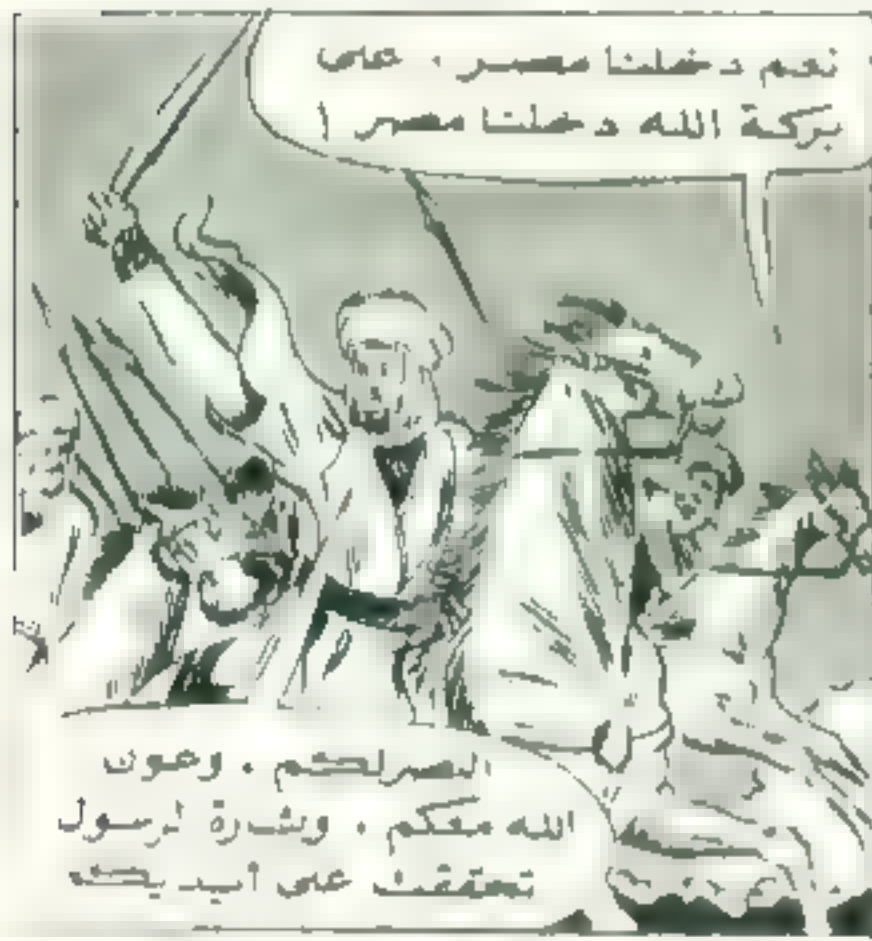 نعم دخلنا مصر. على
بركة الله دخلنا مصر!
النصر لكم. وعون
الله معكم. وبشارة لرسول
تحققت على أيديكم